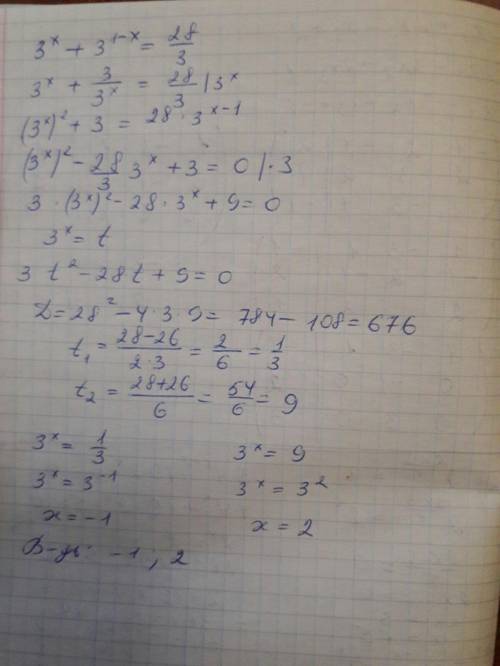 3^x + 3^{1-x} = 28/3
3^x + 3/3^x = 28/3 | 3^x
(3^x)^2 + 3 = 28 · 3^{x-1}
(3^x)^2 - 28/3 3^x + 3 = 0 | · 3
3 · (3^x)^2 - 28 · 3^x + 9 = 0
3^x = t
3 t^2 - 28t + 9 = 0
D = 28^2 - 4 · 3 · 9 = 784 - 108 = 676
t_1 = (28-26)/(2·3) = 2/6 = 1/3
t_2 = (28+26)/6 = 54/6 = 9
3^x = 1/3    3^x = 9
3^x = 3^{-1}    3^x = 3^2
x = -1    x = 2
В-дь: -1 ; 2